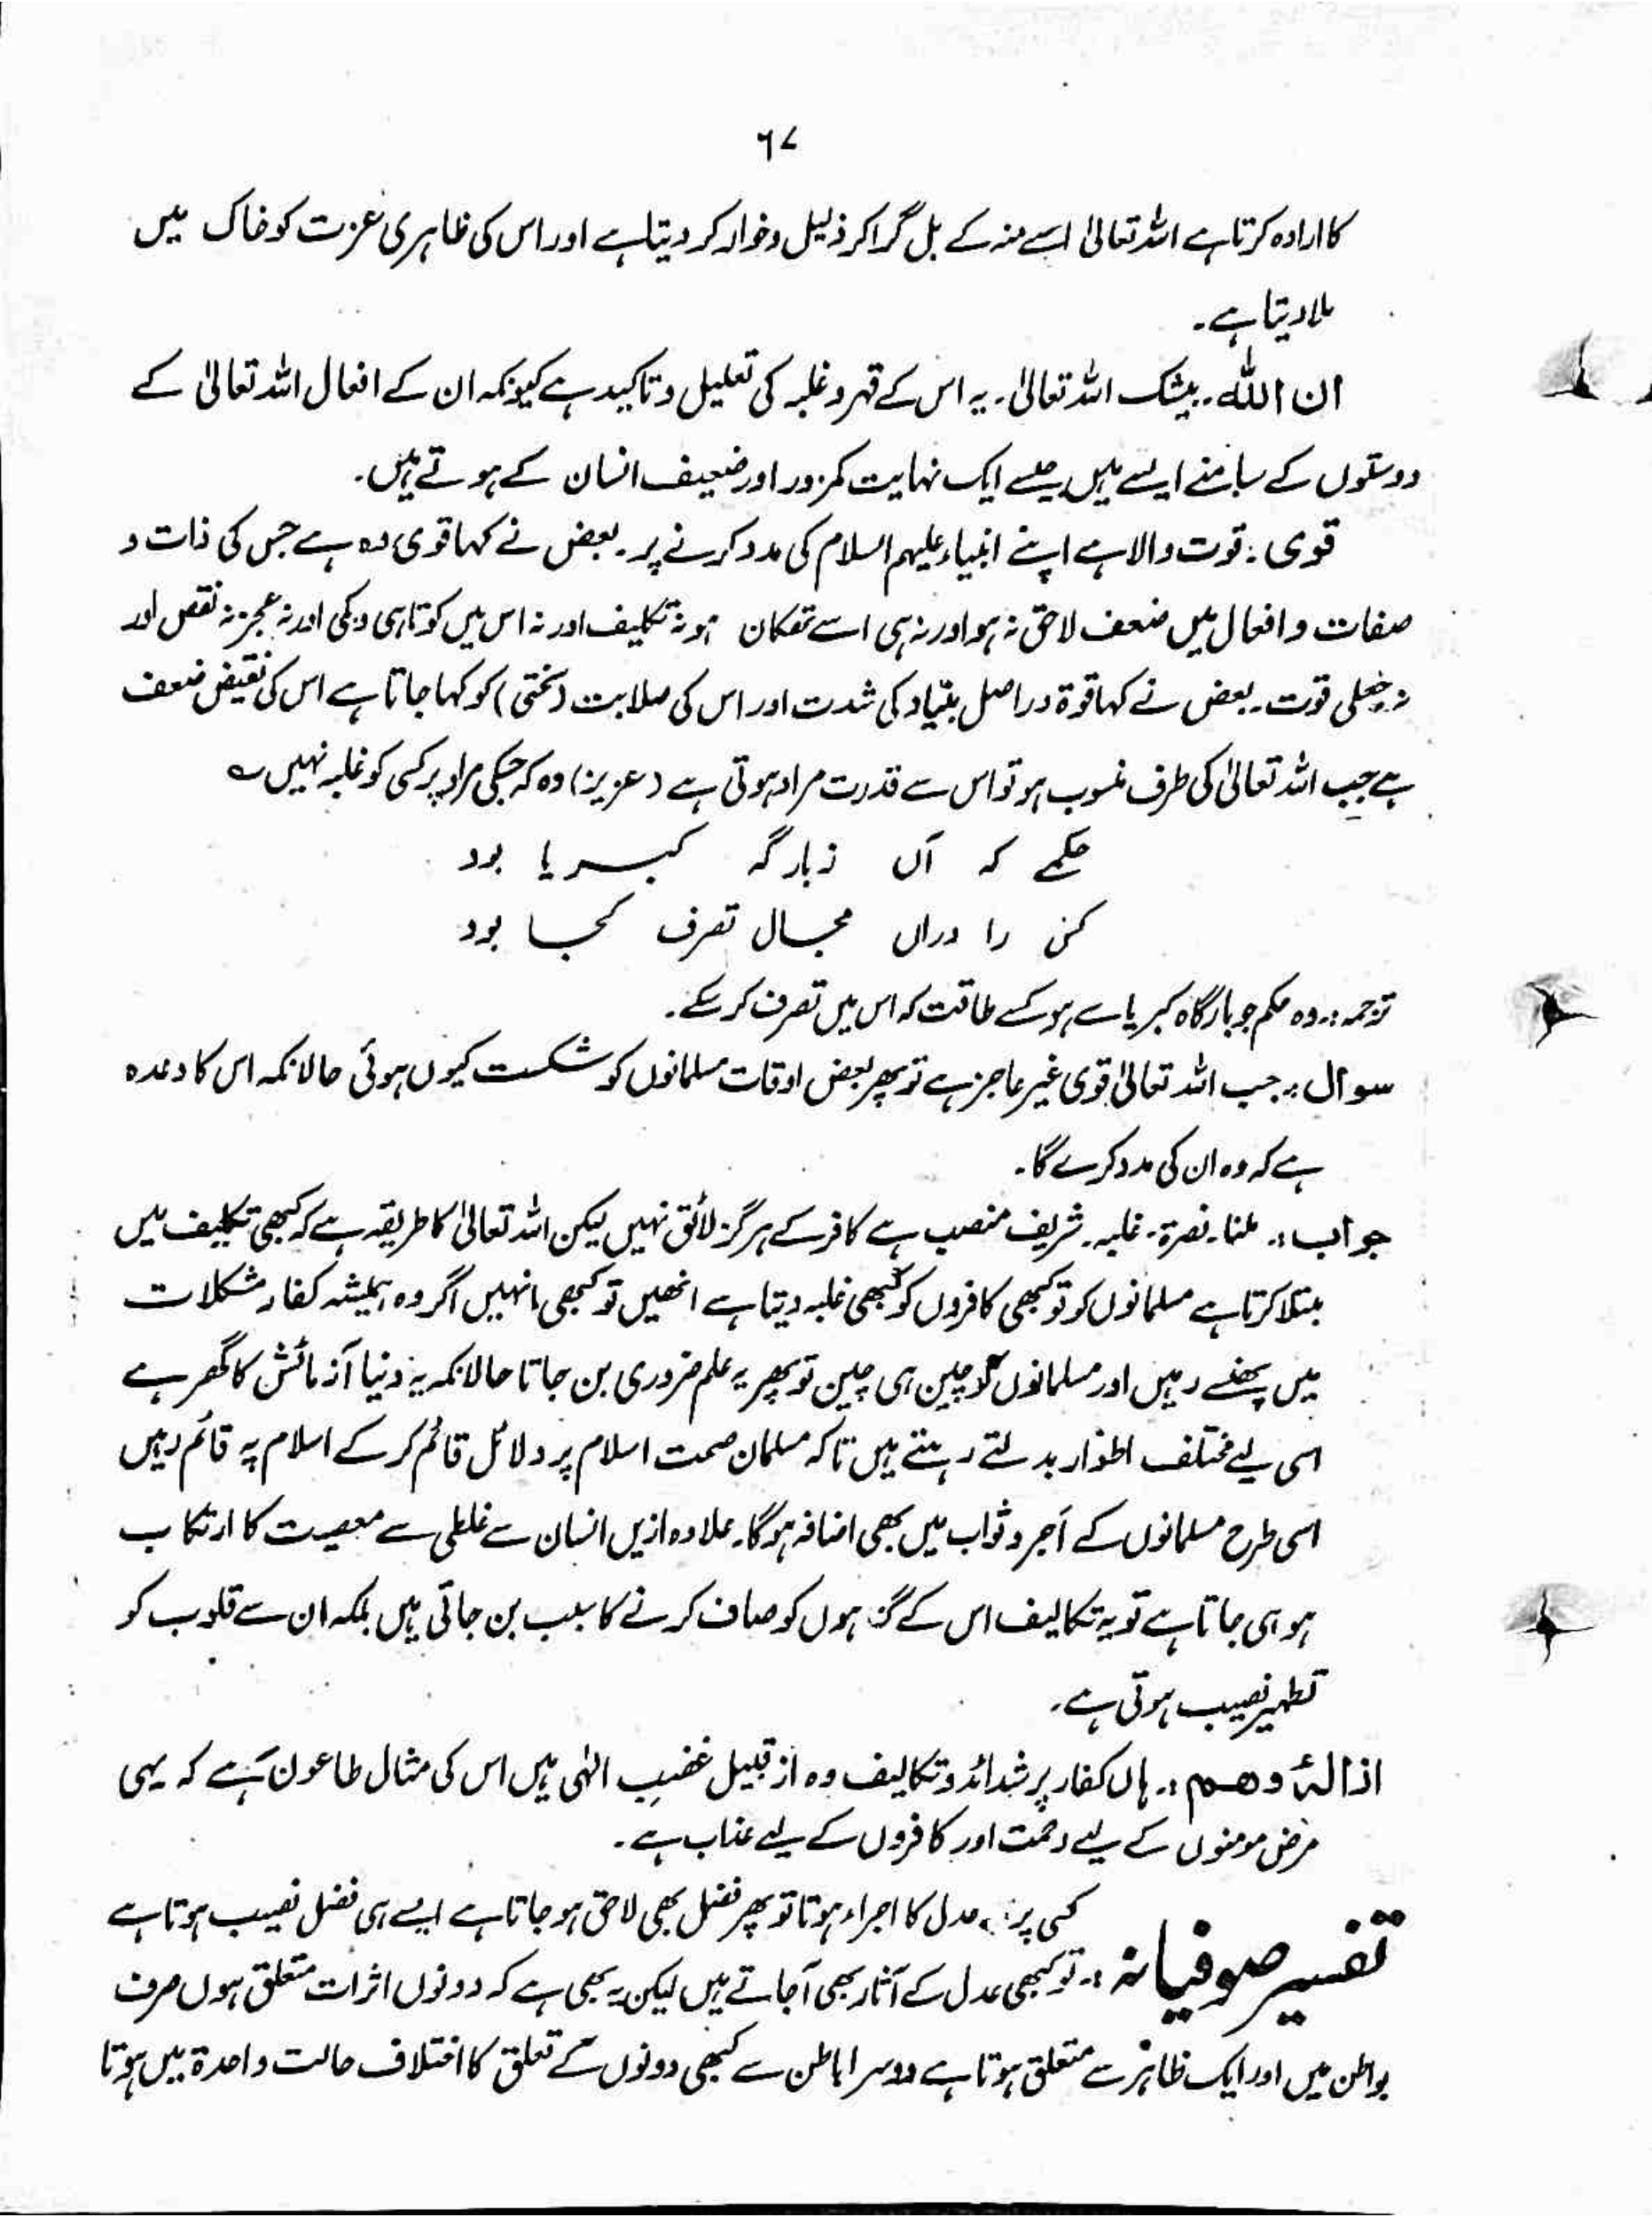 ۶۷
کا ارادہ کرتا ہے اللہ تعالیٰ اسے منہ کے بل گرا کر ذلیل و خوار کر دیتا ہے اور اس کی ظاہری عزت کو خاک میں
ملا دیتا ہے۔
ان اللہ۔ بیشک اللہ تعالیٰ۔ یہ اس کے قہر و غلبہ کی تعلیل و تاکید ہے کیونکہ ان کے افعال اللہ تعالیٰ کے
دوستوں کے سامنے ایسے ہیں جیسے ایک نہایت کمزور اور ضعیف انسان کے ہوتے ہیں۔
قوی: قوت والا ہے اپنے انبیاء علیہم السلام کی مدد کرنے پر۔ بعض نے کہا قوی وہ ہے جس کی ذات و
صفات و افعال میں ضعف لاحق نہ ہو اور نہ ہی اسے تھکان ہو نہ تکلیف اور نہ اس میں کوتاہی و کمی اور نہ عجز نہ نقص اور
نہ جعلی قوت۔ بعض نے کہا قوۃ دراصل بنیاد کی شدت اور اس کی صلابت (سختی) کو کہا جاتا ہے اس کی نقیض ضعف
ہے جب اللہ تعالیٰ کی طرف منسوب ہو تو اس سے قدرت مراد ہوتی ہے (عزیز) وہ کہ جسکی مراد پر کسی کو غلبہ نہیں ؎
حکمے کہ آں زبارگہ کبریا بود
کس را دراں مجال تصرف کجا بود
ترجمہ:۔ وہ حکم جو بارگاہ کبریا سے ہو کسے طاقت کہ اس میں تصرف کر سکے۔
سوال:۔ جب اللہ تعالیٰ قوی غیر عاجز ہے تو پھر بعض اوقات مسلمانوں کو شکست کیوں ہوئی حالانکہ اس کا وعدہ
ہے کہ وہ ان کی مدد کرے گا۔
جواب:۔ نصرۃ۔ غلبہ۔ شریف منصب ہے کافر کے ہرگز لائق نہیں لیکن اللہ تعالیٰ کا طریقہ ہے کہ کبھی تکلیف میں
مبتلا کرتا ہے مسلمانوں کو تو کبھی کافروں کو کبھی غلبہ دیتا ہے انھیں تو کبھی انہیں اگر وہ ہمیشہ کفار مشکلات
میں پھنسے رہیں اور مسلمانوں کو چین ہی چین تو پھر یہ علم ضروری بن جاتا حالانکہ یہ دنیا آزمائش کا گھر ہے
اسی لیے مختلف اطوار بدلتے رہتے ہیں تاکہ مسلمان صحت اسلام پر دلائل قائم کر کے اسلام پہ قائم رہیں
اسی طرح مسلمانوں کے اجر و ثواب میں بھی اضافہ ہو گا۔ علاوہ ازیں انسان سے غلطی سے معصیت کا ارتکاب
ہو ہی جاتا ہے تو یہ تکالیف اس کے گناہوں کو صاف کرنے کا سبب بن جاتی ہیں بلکہ ان سے قلوب کو
تطہیر نصیب ہوتی ہے۔
ازالۂ وہم:۔ ہاں کفار پر شدائد و تکالیف وہ از قبیل غضبِ الٰہی ہیں اس کی مثال طاعون ہے کہ یہی
مرض مومنوں کے لیے رحمت اور کافروں کے لیے عذاب ہے۔
کسی پر عدل کا اجراء ہوتا تو پھر فضل بھی لاحق ہو جاتا ہے ایسے ہی فضل نصیب ہوتا ہے
تفسیر صوفیانہ:۔ تو کبھی عدل کے آثار بھی آ جاتے ہیں لیکن یہ بھی ہے کہ دونوں اثرات متعلق ہوں صرف
بواطن میں اور ایک ظاہر سے متعلق ہوتا ہے دوسرا باطن سے کبھی دونوں کے تعلق کا اختلاف حالت واحدۃ میں ہوتا